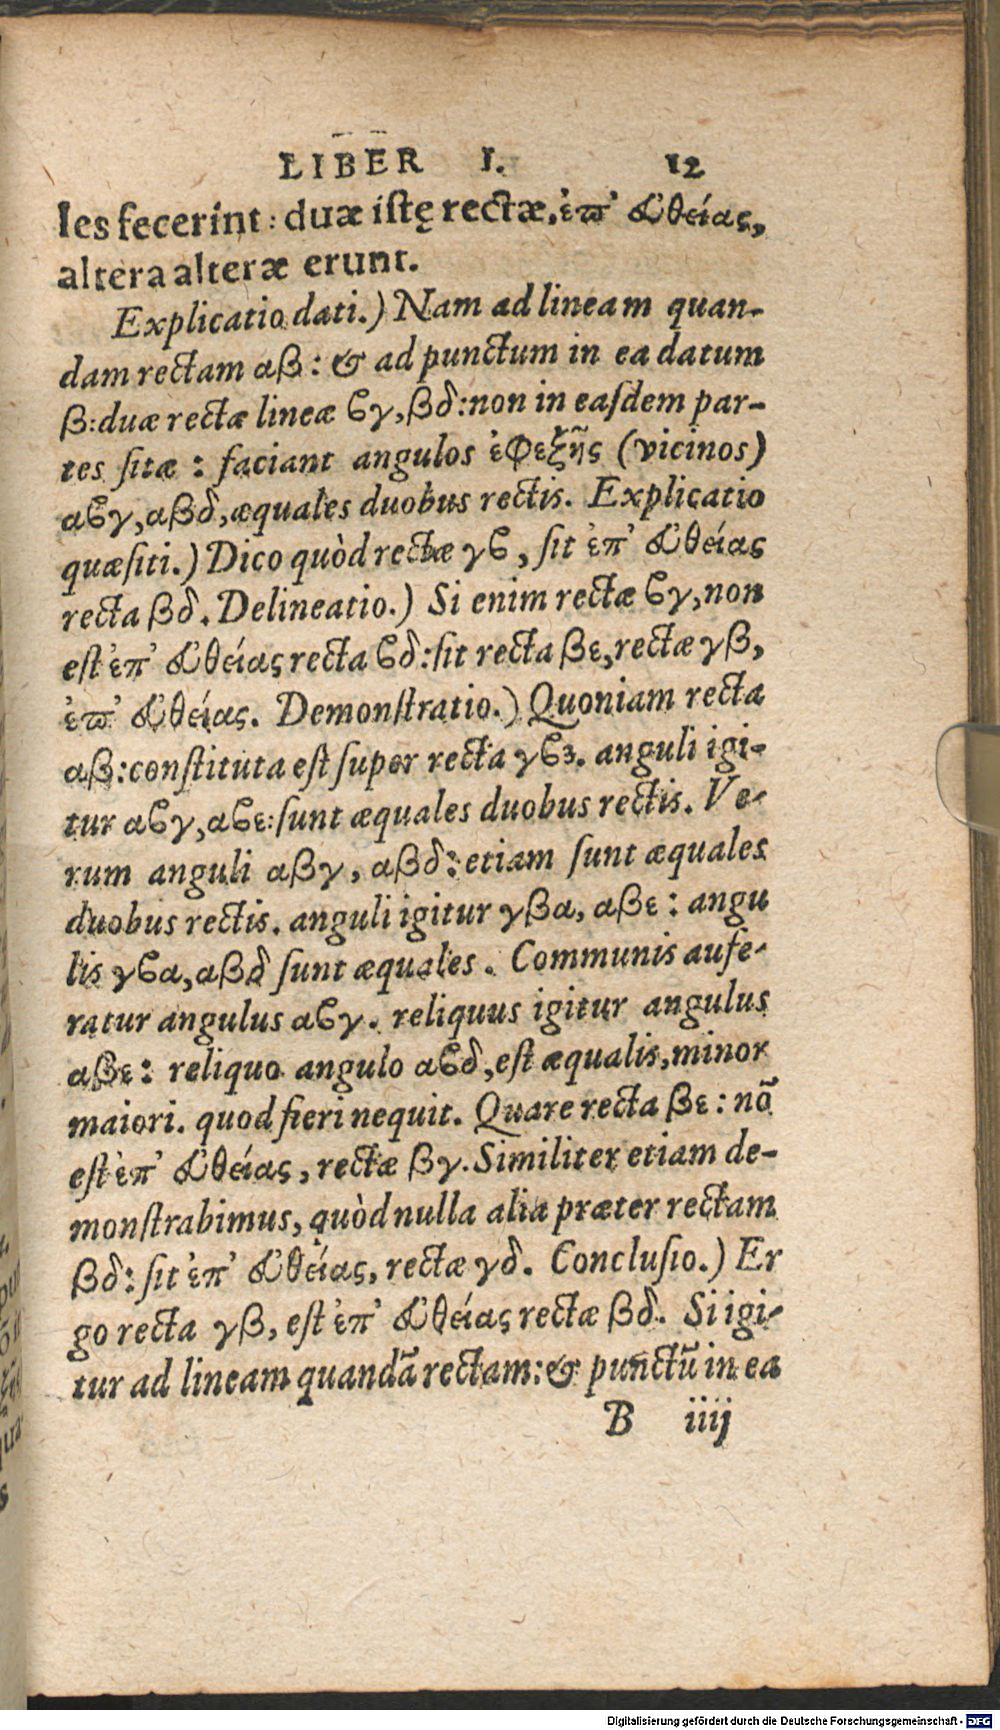 LIBER I. 12
les fecerint: duæ istę rectæ, ἐπ' εὐθείας,
altera alteræ erunt.
Explicatio dati.) Nam ad lineam quan-
dam rectam αβ: & ad punctum in ea datum
β: duæ rectæ lineæ ϐγ, βδ: non in easdem par-
tes sitæ: faciant angulos ἐφεξῆς (vicinos)
αϐγ, αβδ, æquales duobus rectis. Explicatio
quæsiti.) Dico quòd rectæ γϐ, sit ἐπ' εὐθείας
recta βδ. Delineatio.) Si enim rectæ ϐγ, non
est ἐπ' εὐθείας recta ϐδ: sit recta βε, rectæ γβ,
ἐπ' εὐθείας. Demonstratio.) Quoniam recta
αβ: constituta est super recta γϐɜ. anguli igi-
tur αϐγ, αϐε: sunt æquales duobus rectis. Ve-
rum anguli αβγ, αβδ: etiam sunt æquales
duobus rectis. anguli igitur γβα, αβε: angu
lis γϐα, αβδ sunt æquales. Communis aufe-
ratur angulus αϐγ. reliquus igitur angulus
αβε: reliquo angulo αϐδ, est æqualis, minor
maiori. quod fieri nequit. Quare recta βε: nõ
est ἐπ' εὐθείας, rectæ βγ. Similiter etiam de-
monstrabimus, quòd nulla alia præter rectam
βδ: sit ἐπ' εὐθείας, rectæ γδ. Conclusio.) Er
go recta γβ, est ἐπ' εὐθείας rectæ βδ. Si igi-
tur ad lineam quandã rectam: & punctũ in ea
B iiij
Digitalisierung gefördert durch die Deutsche Forschungsgemeinschaft - DFG